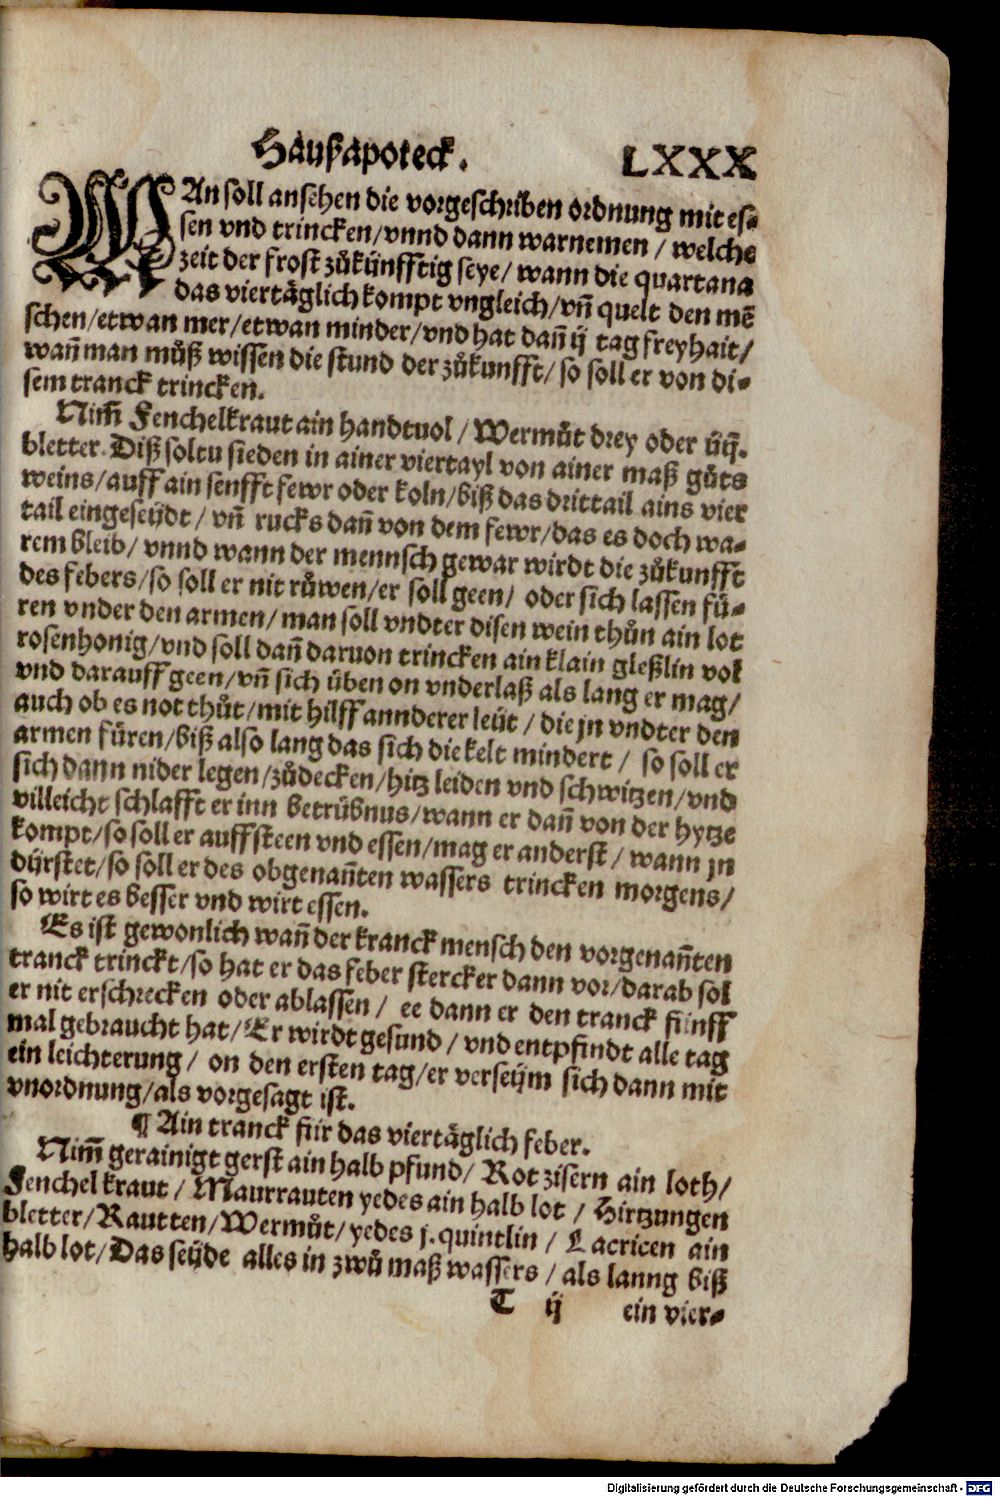 Haußapoteck. LXXX
MAn soll ansehen die vorgeschriben ordnung mit es⸗
sen vnd trincken/vnnd dann warnemen / welche
zeit der frost zůkünfftig seye/ wann die quartana
das viertäglich kompt vngleich/vñ quelt den mẽ
schen/etwan mer/etwan minder/vnd hat dañ ij tag freyhait/
wañ man můß wissen die stund der zůkunfft/ so soll er von di⸗
sem tranck trincken.
Nim̃ Fenchelkraut ain handtuol / Wermůt drey oder iiij.
bletter. Diß soltu sieden in ainer viertayl von ainer maß gůts
weins/auff ain senfft fewr oder koln/biß das drittail ains vier
tail eingeseydt/ vñ rucks dañ von dem fewr/das es doch wa⸗
rem bleib/ vnnd wann der mennsch gewar wirdt die zůkunfft
des febers/so soll er nit růwen/er soll geen/ oder sich lassen fü⸗
ren vnder den armen/ man soll vndter disen wein thůn ain lot
rosenhonig/vnd soll dañ daruon trincken ain klain gleßlin vol
vnd darauff geen/vñ sich üben on vnderlaß als lang er mag/
auch ob es not thůt/mit hilff annderer leüt / die jn vndter den
armen füren/biß also lang das sich die kelt mindert / so soll er
sich dann nider legen/zůdecken/hitz leiden vnd schwitzen/vnd
villeicht schlafft er inn betrübnus/wann er dañ von der hytze
kompt/so soll er auffsteen vnd essen/mag er anderst / wann jn
dürstet/so soll er des obgenañten wassers trincken morgens/
so wirt es besser vnd wirt essen.
Es ist gewonlich wañ der kranck mensch den vorgenañten
tranck trinckt/so hat er das feber stercker dann vor/darab sol
er nit erschrecken oder ablassen / ee dann er den tranck fünff
mal gebraucht hat/Er wirdt gesund / vnd entpfindt alle tag
ein leichterung / on den ersten tag/er verseym sich dann mit
vnordnung/als vorgesagt ist.
¶ Ain tranck für das viertäglich feber.
Nim̃ gerainigt gerst ain halb pfund/ Rot zisern ain loth/
Fenchel kraut / Maurrauten yedes ain halb lot / Hirtzungen
bletter/Rautten/Wermůt/ yedes j. quintlin / Lacricen ain
halb lot/Das seyde alles in zwů maß wassers / als lanng biß
T ij ein vier⸗
Digitalisierung gefördert durch die Deutsche Forschungsgemeinschaft - DFG